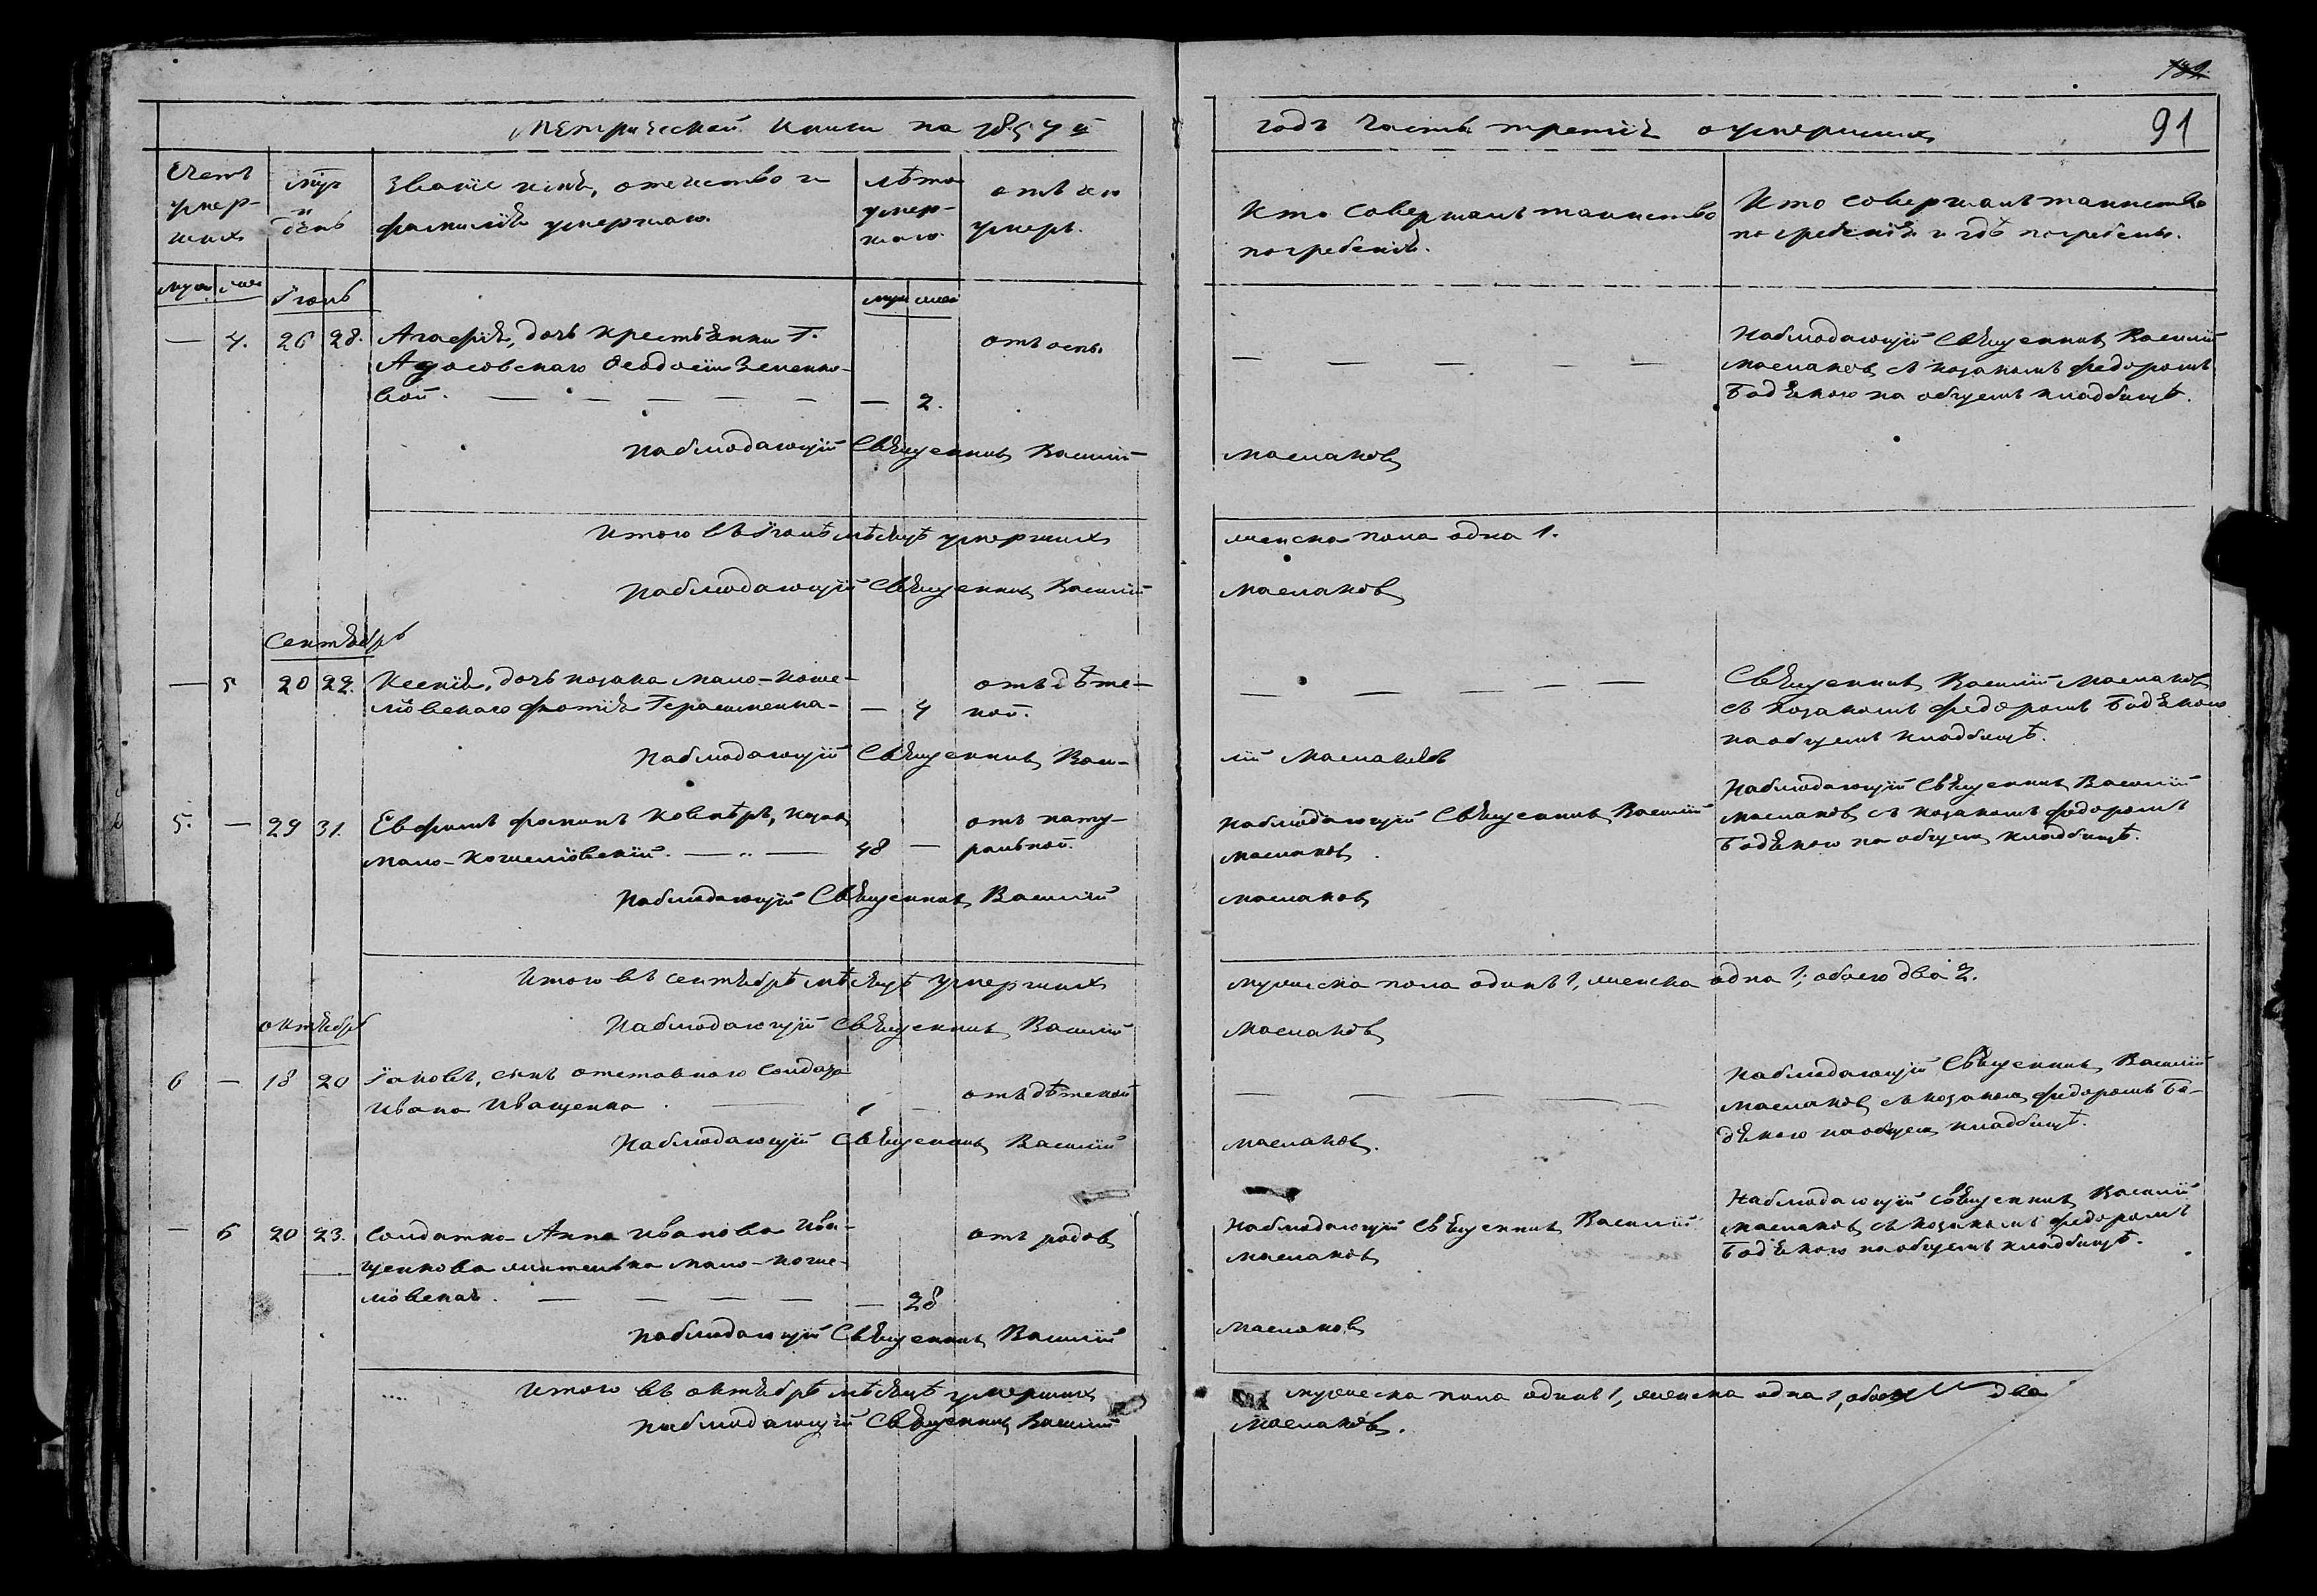 132
Метрической книги на 1857 й
годъ Часть третія о умершихъ
91
Счетъ
умер-
шихъ
мцъ
и
день
Званіе имя, отечество и
фамилія умершаго.
лѣта
умер-
шаго
отъ чего
умеръ.
Кто совершалъ таинство
погребенія.
Кто совершалъ таинство
погребенія и гдѣ погребены.
муж. жен
Іюнь
муж жен
— 4. 26 28. Агафія, дочь крестьянки Г.
Адасовскаго Феодосіи Зененко-
вой. — — — — — — 2.
отъ оспы
— — — — —
Наблюдающій Священникъ Василій
Маслаковъ съ козакомъ Федоромъ
Бодякою на общемъ кладбищѣ.
Наблюдающій Священникъ Василій
Маслаковъ
Итого въ Іюнѣ мѣсяцѣ умершихъ
женска пола одна 1.
Наблюдающій Священникъ Василій
Маслаковъ
Сентябрь
— 5 20 22. Ксенія, дочь козака Мало-Коше-
левскаго Фотія Герасименка — — 4
отъ дѣтс-
кой.
— — — — —
Священникъ Василій Маслаковъ
съ козакомъ Федоромъ Бодякою
на общемъ кладбищѣ.
Наблюдающій Священникъ Васи-
лій Маслаковъ
5. — 29 31. Евфимъ Фоминъ Ковнѣръ, козакъ
Мало-Кошелевскій. — „ — 48 —
отъ нату-
ральной.
Наблюдающій Священникъ Василій
Маслаковъ.
Наблюдающій Священникъ Василій
Маслаковъ съ козакомъ Федоромъ
Бодякою на общемъ кладбищѣ.
Наблюдающій Священникъ Василій
Маслаковъ
Итого въ Сентябрѣ мѣсяцѣ умершихъ
мужеска пола одинъ 1, женска одна 1, обоего два 2.
Октябрь
Наблюдающій Священникъ Василій
Маслаковъ
6 — 18 20 Іаковъ, сынъ отставного Солдата
Ивана Иващенка. — —
отъ дѣтской
— — — — —
Наблюдающій Священникъ Василій
Маслаковъ съ козакомъ Федоромъ Бо-
дякою на общемъ кладбищѣ.
Наблюдающій Священникъ Василій
Маслаковъ.
— 6 20 23. Солдатка Анна Иванова Ива-
щенкова жителька Мало-Коше-
левская. — — — — — 28
отъ родовъ
Наблюдающій Священникъ Василій
Маслаковъ
Наблюдающій Священникъ Василій
Маслаковъ съ козакомъ Федоромъ
Бодякою на общемъ кладбищѣ.
Наблюдающій Священникъ Василій
Маслаковъ
Итого въ Октябрѣ мѣсяцѣ умершихъ
мужеска пола одинъ 1, женска одна 1, обоего два
Наблюдающій Священникъ Василій
Маслаковъ.